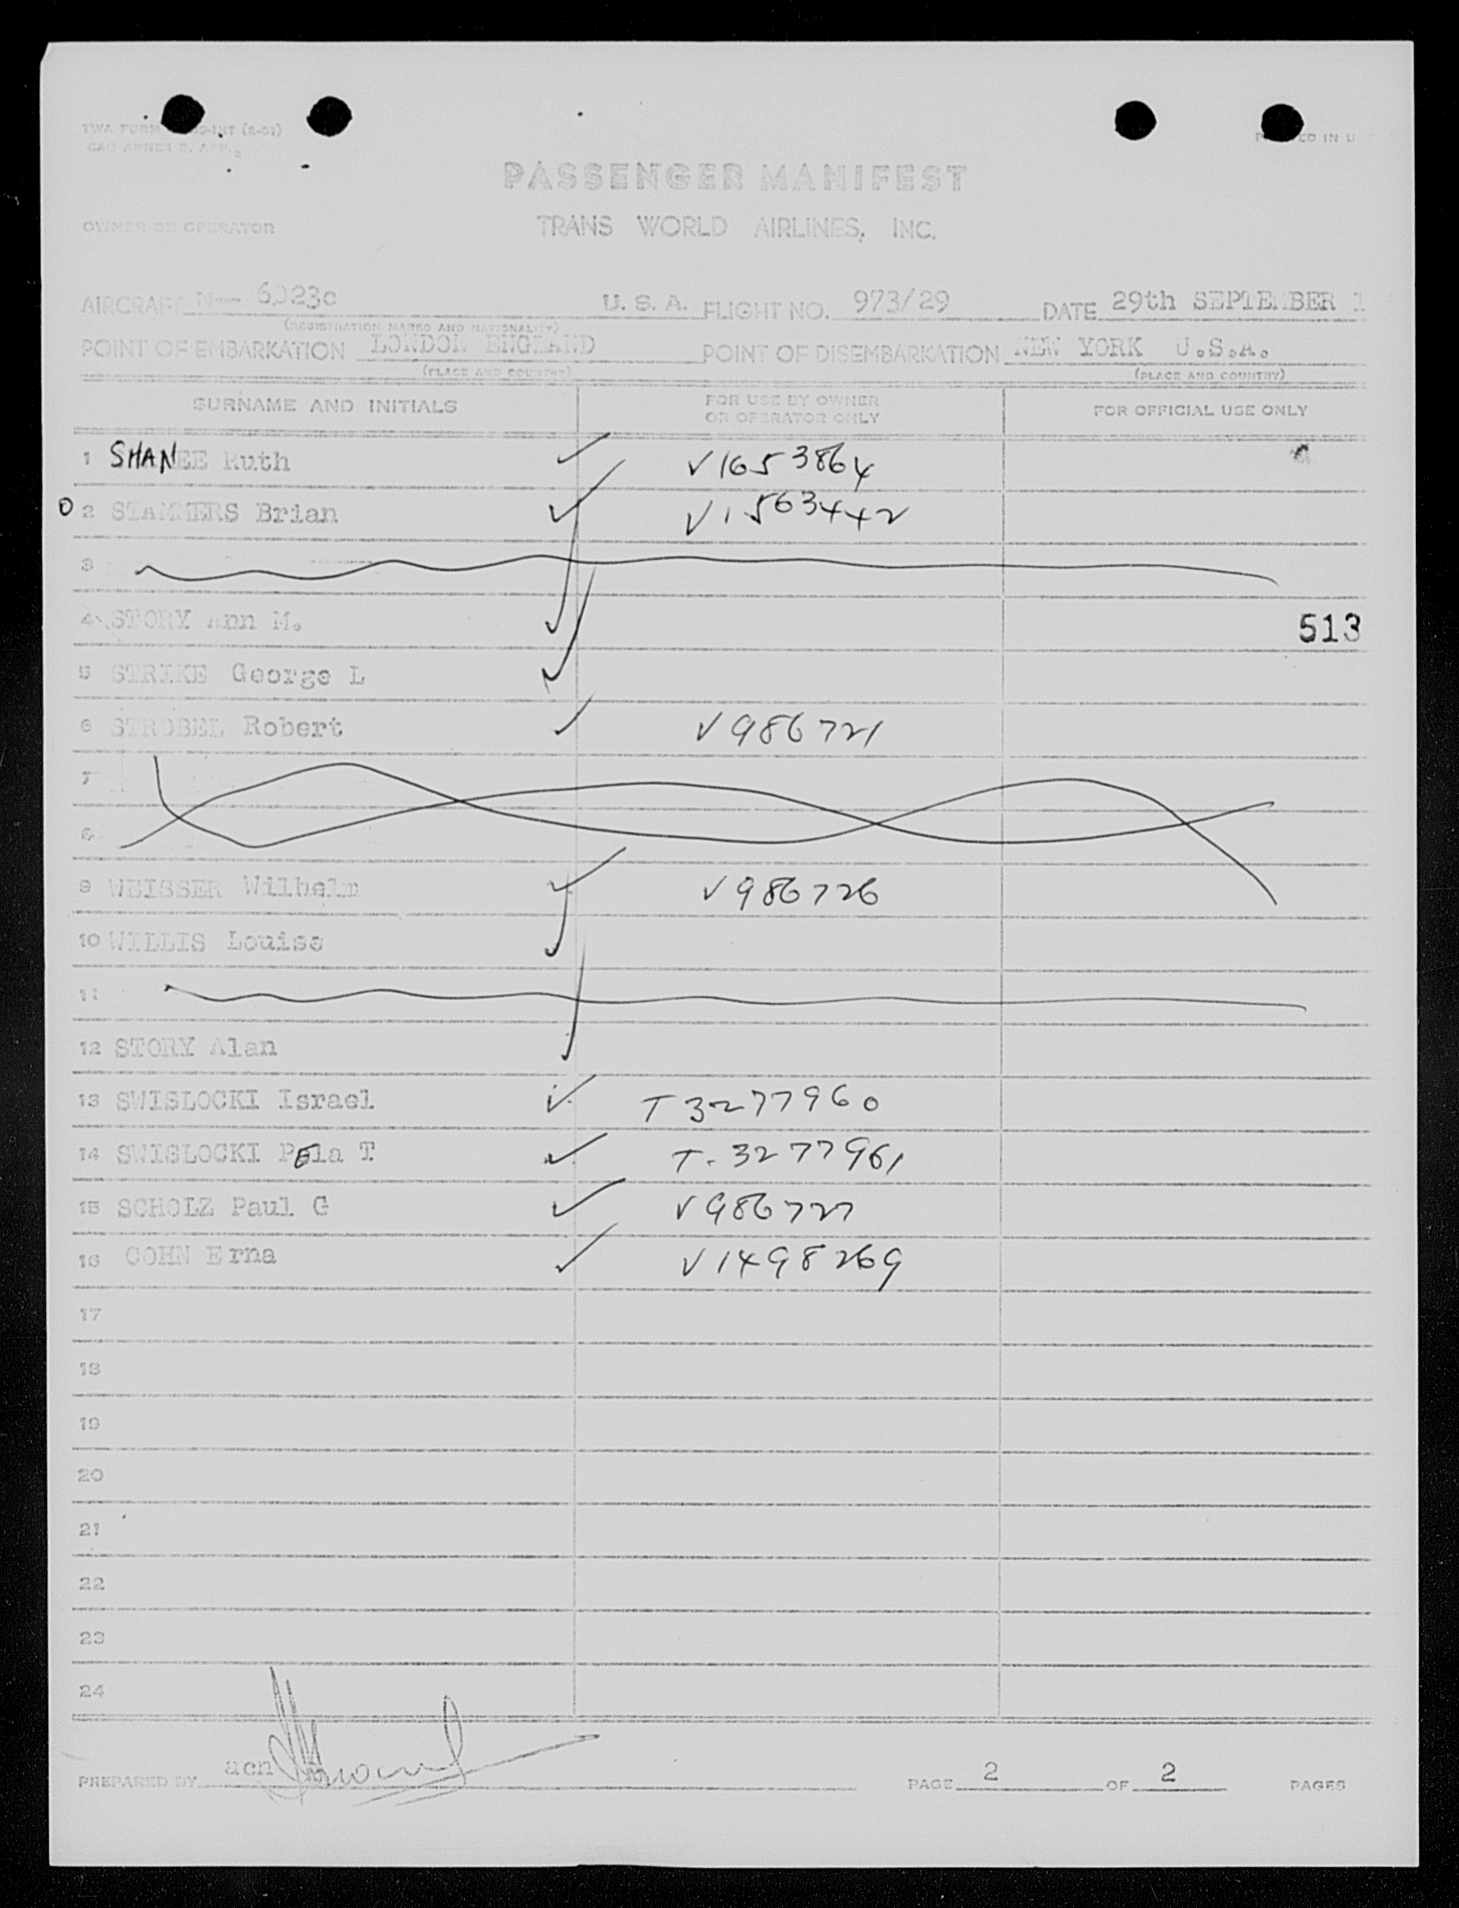 PASSENGER MANIFEST
OWNER OR OPERATOR TRANS WORLD AIRLINES, INC.
AIRCRAFT N-- 6023c U. S. A. FLIGHT NO. 973/29 DATE 29th SEPTEMBER 1
(REGISTRATION MARKS AND NATIONALITY)
POINT OF EMBARKATION LONDON ENGLAND POINT OF DISEMBARKATION NEW YORK U.S.A.
(PLACE AND COUNTRY) (PLACE AND COUNTRY)
SURNAME AND INITIALS FOR USE BY OWNER OR OPERATOR ONLY FOR OFFICIAL USE ONLY
1 SHANEE Ruth ✓ V1653864
0 2 STAMMERS Brian ✓ V1563442
3
4 STORY Ann M. ✓ 513
5 STRIKE George L ✓
6 STROBEL Robert ✓ V986721
7
8
9 WEISSER Wilhelm ✓ V986726
10 WILLIS Louise ✓
11
12 STORY Alan ✓
13 SWISLOCKI Israel ✓ T3277960
14 SWISLOCKI Pela T ✓ T-3277961
15 SCHOLZ Paul G ✓ V986727
16 COHN Erna ✓ V1498269
17
18
19
20
21
22
23
24
PREPARED BY acn PAGE 2 OF 2 PAGES